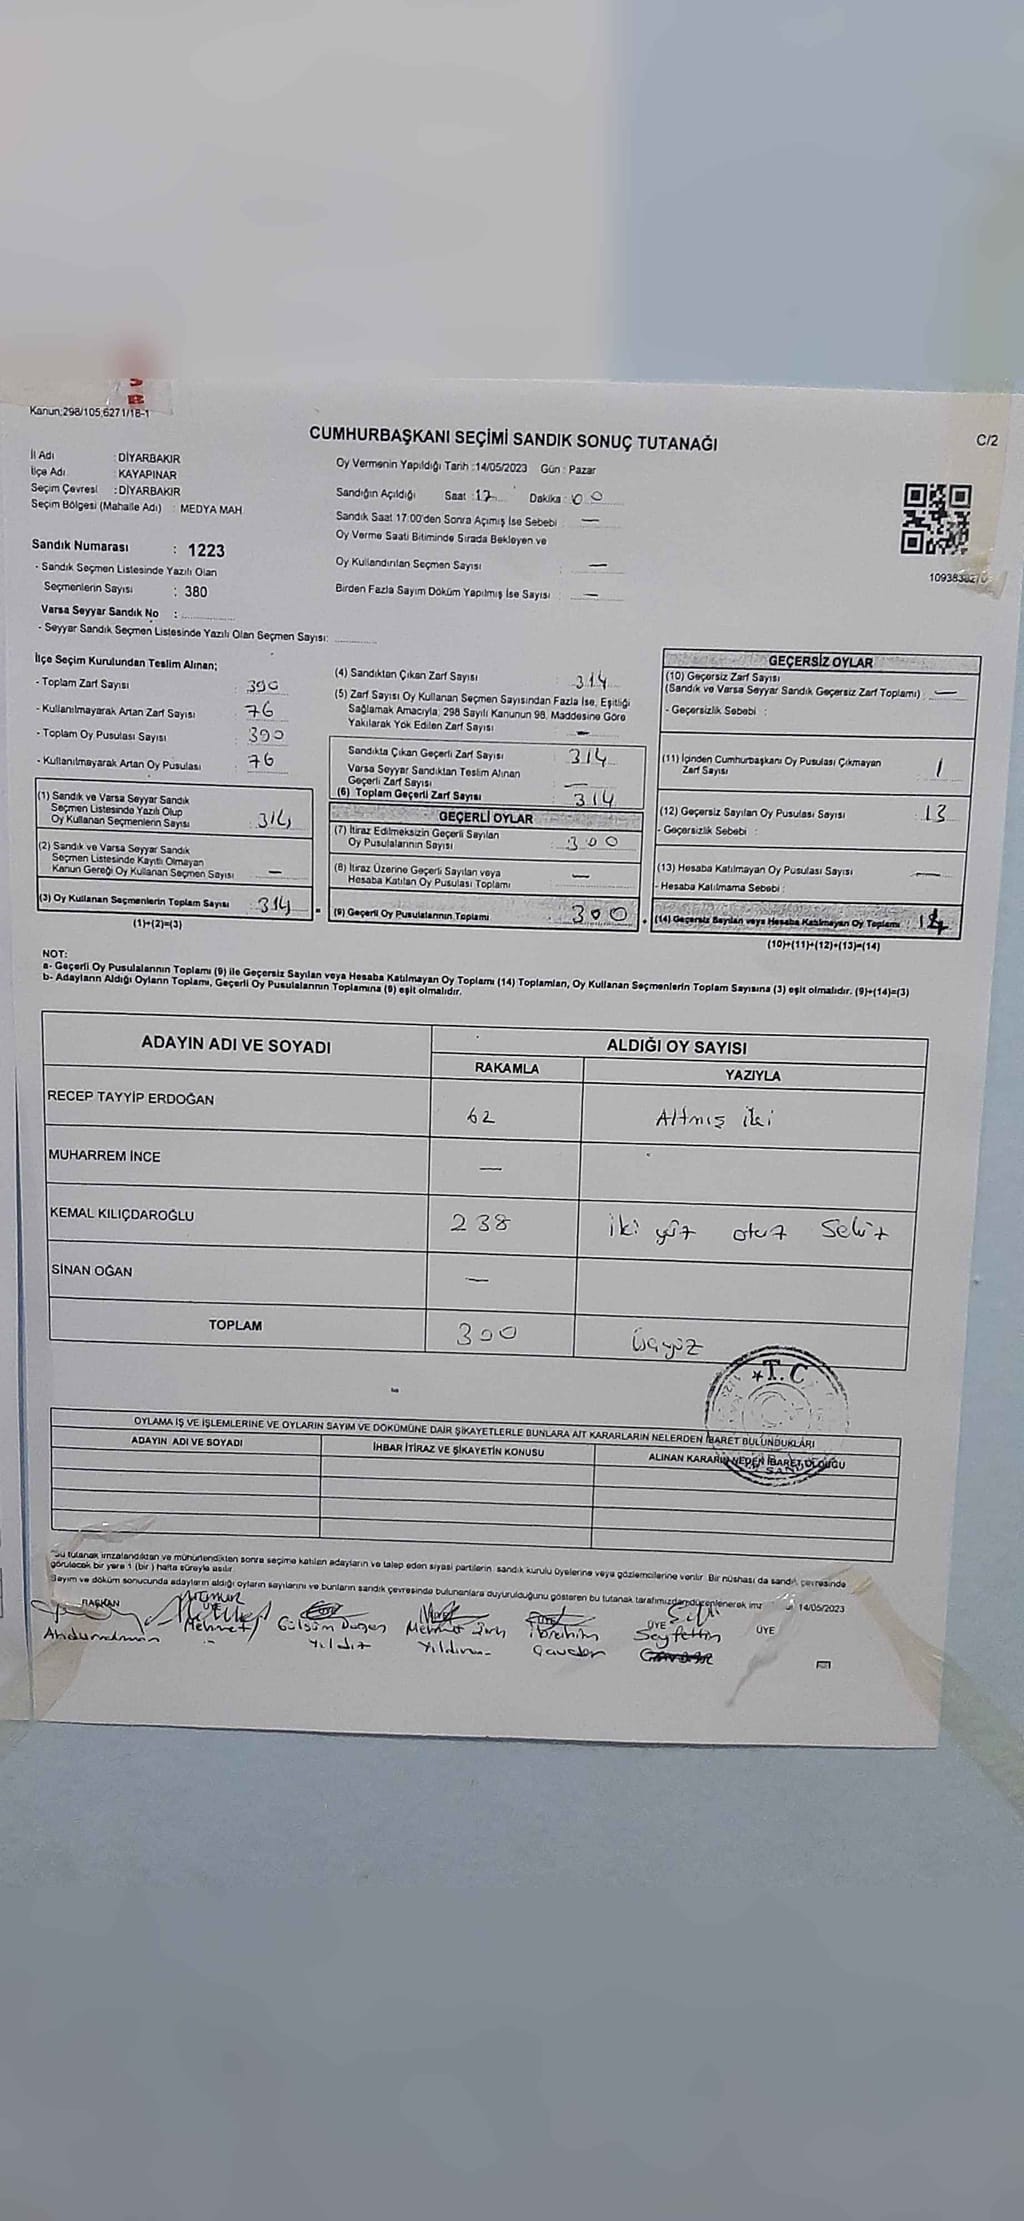 Kanun;298/105,6271/18-1
CUMHURBAŞKANI SEÇİMİ SANDIK SONUÇ TUTANAĞI
C/2
İl Adı : DİYARBAKIR
İlçe Adı : KAYAPINAR
Seçim Çevresi : DİYARBAKIR
Seçim Bölgesi (Mahalle Adı) : MEDYA MAH
Oy Vermenin Yapıldığı Tarih :14/05/2023 Gün : Pazar
Sandığın Açıldığı Saat :17 Dakika :00
Sandık Saat 17:00'den Sonra Açımış İse Sebebi : —
Oy Verme Saati Bitiminde Sırada Bekleyen ve
Oy Kullandırılan Seçmen Sayısı : —
Birden Fazla Sayım Döküm Yapılmış İse Sayısı : —
Sandık Numarası : 1223
- Sandık Seçmen Listesinde Yazılı Olan
Seçmenlerin Sayısı : 380
Varsa Seyyar Sandık No :
- Seyyar Sandık Seçmen Listesinde Yazılı Olan Seçmen Sayısı:
İlçe Seçim Kurulundan Teslim Alınan;
- Toplam Zarf Sayısı : 390
- Kullanılmayarak Artan Zarf Sayısı : 76
- Toplam Oy Pusulası Sayısı : 390
- Kullanılmayarak Artan Oy Pusulası : 76
(1) Sandık ve Varsa Seyyar Sandık
Seçmen Listesinde Yazılı Olup
Oy Kullanan Seçmenlerin Sayısı : 314
(2) Sandık ve Varsa Seyyar Sandık
Seçmen Listesinde Kayıtlı Olmayan
Kanun Gereği Oy Kullanan Seçmen Sayısı : —
(3) Oy Kullanan Seçmenlerin Toplam Sayısı : 314
(1)+(2)=(3)
(4) Sandıktan Çıkan Zarf Sayısı : 314
(5) Zarf Sayısı Oy Kullanan Seçmen Sayısından Fazla İse, Eşitliği
Sağlamak Amacıyla, 298 Sayılı Kanunun 98. Maddesine Göre
Yakılarak Yok Edilen Zarf Sayısı : —
Sandıkta Çıkan Geçerli Zarf Sayısı : 314
Varsa Seyyar Sandıktan Teslim Alınan
Geçerli Zarf Sayısı : —
(6) Toplam Geçerli Zarf Sayısı : 314
GEÇERLİ OYLAR
(7) İtiraz Edilmeksizin Geçerli Sayılan
Oy Pusulalarının Sayısı : 300
(8) İtiraz Üzerine Geçerli Sayılan veya
Hesaba Katılan Oy Pusulası Toplamı : —
(9) Geçerli Oy Pusulalarının Toplamı : 300
GEÇERSİZ OYLAR
(10) Geçersiz Zarf Sayısı
(Sandık ve Varsa Seyyar Sandık Geçersiz Zarf Toplamı) : —
- Geçersizlik Sebebi :
(11) İçinden Cumhurbaşkanı Oy Pusulası Çıkmayan
Zarf Sayısı : 1
(12) Geçersiz Sayılan Oy Pusulası Sayısı : 13
- Geçersizlik Sebebi :
(13) Hesaba Katılmayan Oy Pusulası Sayısı : —
- Hesaba Katılmama Sebebi :
(14) Geçersiz Sayılan veya Hesaba Katılmayan Oy Toplamı : 14
(10)+(11)+(12)+(13)=(14)
NOT:
a- Geçerli Oy Pusulalarının Toplamı (9) ile Geçersiz Sayılan veya Hesaba Katılmayan Oy Toplamı (14) Toplamları, Oy Kullanan Seçmenlerin Toplam Sayısına (3) eşit olmalıdır. (9)+(14)=(3)
b- Adayların Aldığı Oyların Toplamı, Geçerli Oy Pusulalarının Toplamına (9) eşit olmalıdır.
ADAYIN ADI VE SOYADI
ALDIĞI OY SAYISI
RAKAMLA YAZIYLA
RECEP TAYYİP ERDOĞAN 62 Altmış iki
MUHARREM İNCE —
KEMAL KILIÇDAROĞLU 238 iki yüz otuz Sekiz
SİNAN OĞAN —
TOPLAM 300 üçyüz
T.C
OYLAMA İŞ VE İŞLEMLERİNE VE OYLARIN SAYIM VE DÖKÜMÜNE DAİR ŞİKAYETLERLE BUNLARA AİT KARARLARIN NELERDEN İBARET BULUNDUKLARI
ADAYIN ADI VE SOYADI
İHBAR İTİRAZ VE ŞİKAYETİN KONUSU
ALINAN KARARIN NEDEN İBARET OLDUĞU
Bu tutanak imzalandıktan ve mühürlendikten sonra seçime katılan adayların ve talep eden siyasi partilerin sandık kurulu üyelerine veya gözlemcilerine verilir. Bir nüshası da sandık çevresinde
görülecek bir yere 1 (bir) hafta süreyle asılır.
Sayım ve döküm sonucunda adayların aldığı oyların sayılarını ve bunların sandık çevresinde bulunanlara duyurulduğunu gösteren bu tutanak tarafımızdan düzenlenerek 14/05/2023
BAŞKAN ÜYE ÜYE ÜYE ÜYE ÜYE ÜYE
Abdurrahman Mehmet Gülsüm Mehmet İbrahim Seyfettin
Yıldız Yıldırım